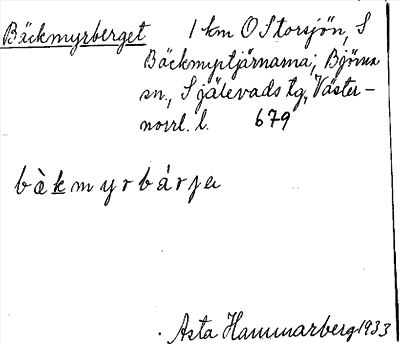 Bäckmyrberget 1 km O Storsjön, S
Bäckmyrtjärnarna; Björna
sn., Själevads tg, Väster-
norrl. l. 679
bàkmyrbárja
Asta Hammarberg 1933